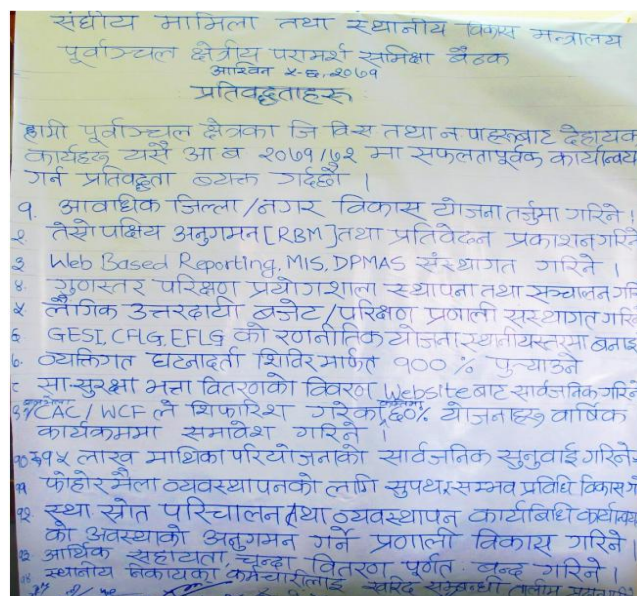 संघीय मामिला तथा स्थानीय विकास मन्त्रालय
पूर्वाञ्चल क्षेत्रीय परामर्श समिक्षा बैठक
आश्विन ५-६, २०७१
प्रतिवद्धताहरू
हामी पूर्वाञ्चल क्षेत्रका जि वि स तथा न पाहरूबाट देहायका
कार्यहरू यसै आ ब २०७१/७२ मा सफलतापूर्वक कार्यान्वयन
गर्न प्रतिवद्धता ब्यक्त गर्दछौं ।
१. आवधिक जिल्ला/नगर विकास योजना तर्जुमा गरिने ।
२. तेस्रो पक्षिय अनुगमन [RBM] तथा प्रतिवेदन प्रकाशन गरिने
३ Web Based Reporting, MIS, DPMAS संस्थागत गरिने ।
४. गुणस्तर परिक्षण प्रयोगशाला स्थापना तथा सञ्चालन गरि
५ लैंगिक उत्तरदायी बजेट/परिक्षण प्रणाली संस्थागत गरिने
६ GESI, CFLG, EFLG को रणनीतिक योजना स्थानीयस्तरमा बनाइ
७. व्यक्तिगत घटनादर्ता शिविर मार्फत १०० % पुऱ्याउने
८ सा. सुरक्षा भत्ता वितरणको विवरण Website बाट सार्वजनिक गरिने
९ CAC / WCF ले शिफारिश गरेका ६०% योजनाहरू वार्षिक
कार्यक्रममा समावेश गरिने ।
१० १५ लाख माथिका परियोजनाको सार्वजनिक सुनुवाई गरिने
११ फोहोरमैला व्यवस्थापनको लागि सुपथ र सम्भव प्रविधि विकास ग
१२ स्था स्रोत परिचालन तथा व्यवस्थापन कार्यबिधि कार्यान्वयन
को अवस्थाको अनुगमन गर्ने प्रणाली विकास गरिने ।
१३ आर्थिक सहायता, चन्दा वितरण पूर्णतः बन्द गरिने ।
१४ स्थानीय निकायका कर्मचारीलाई खरिद सम्बन्धी तालीम